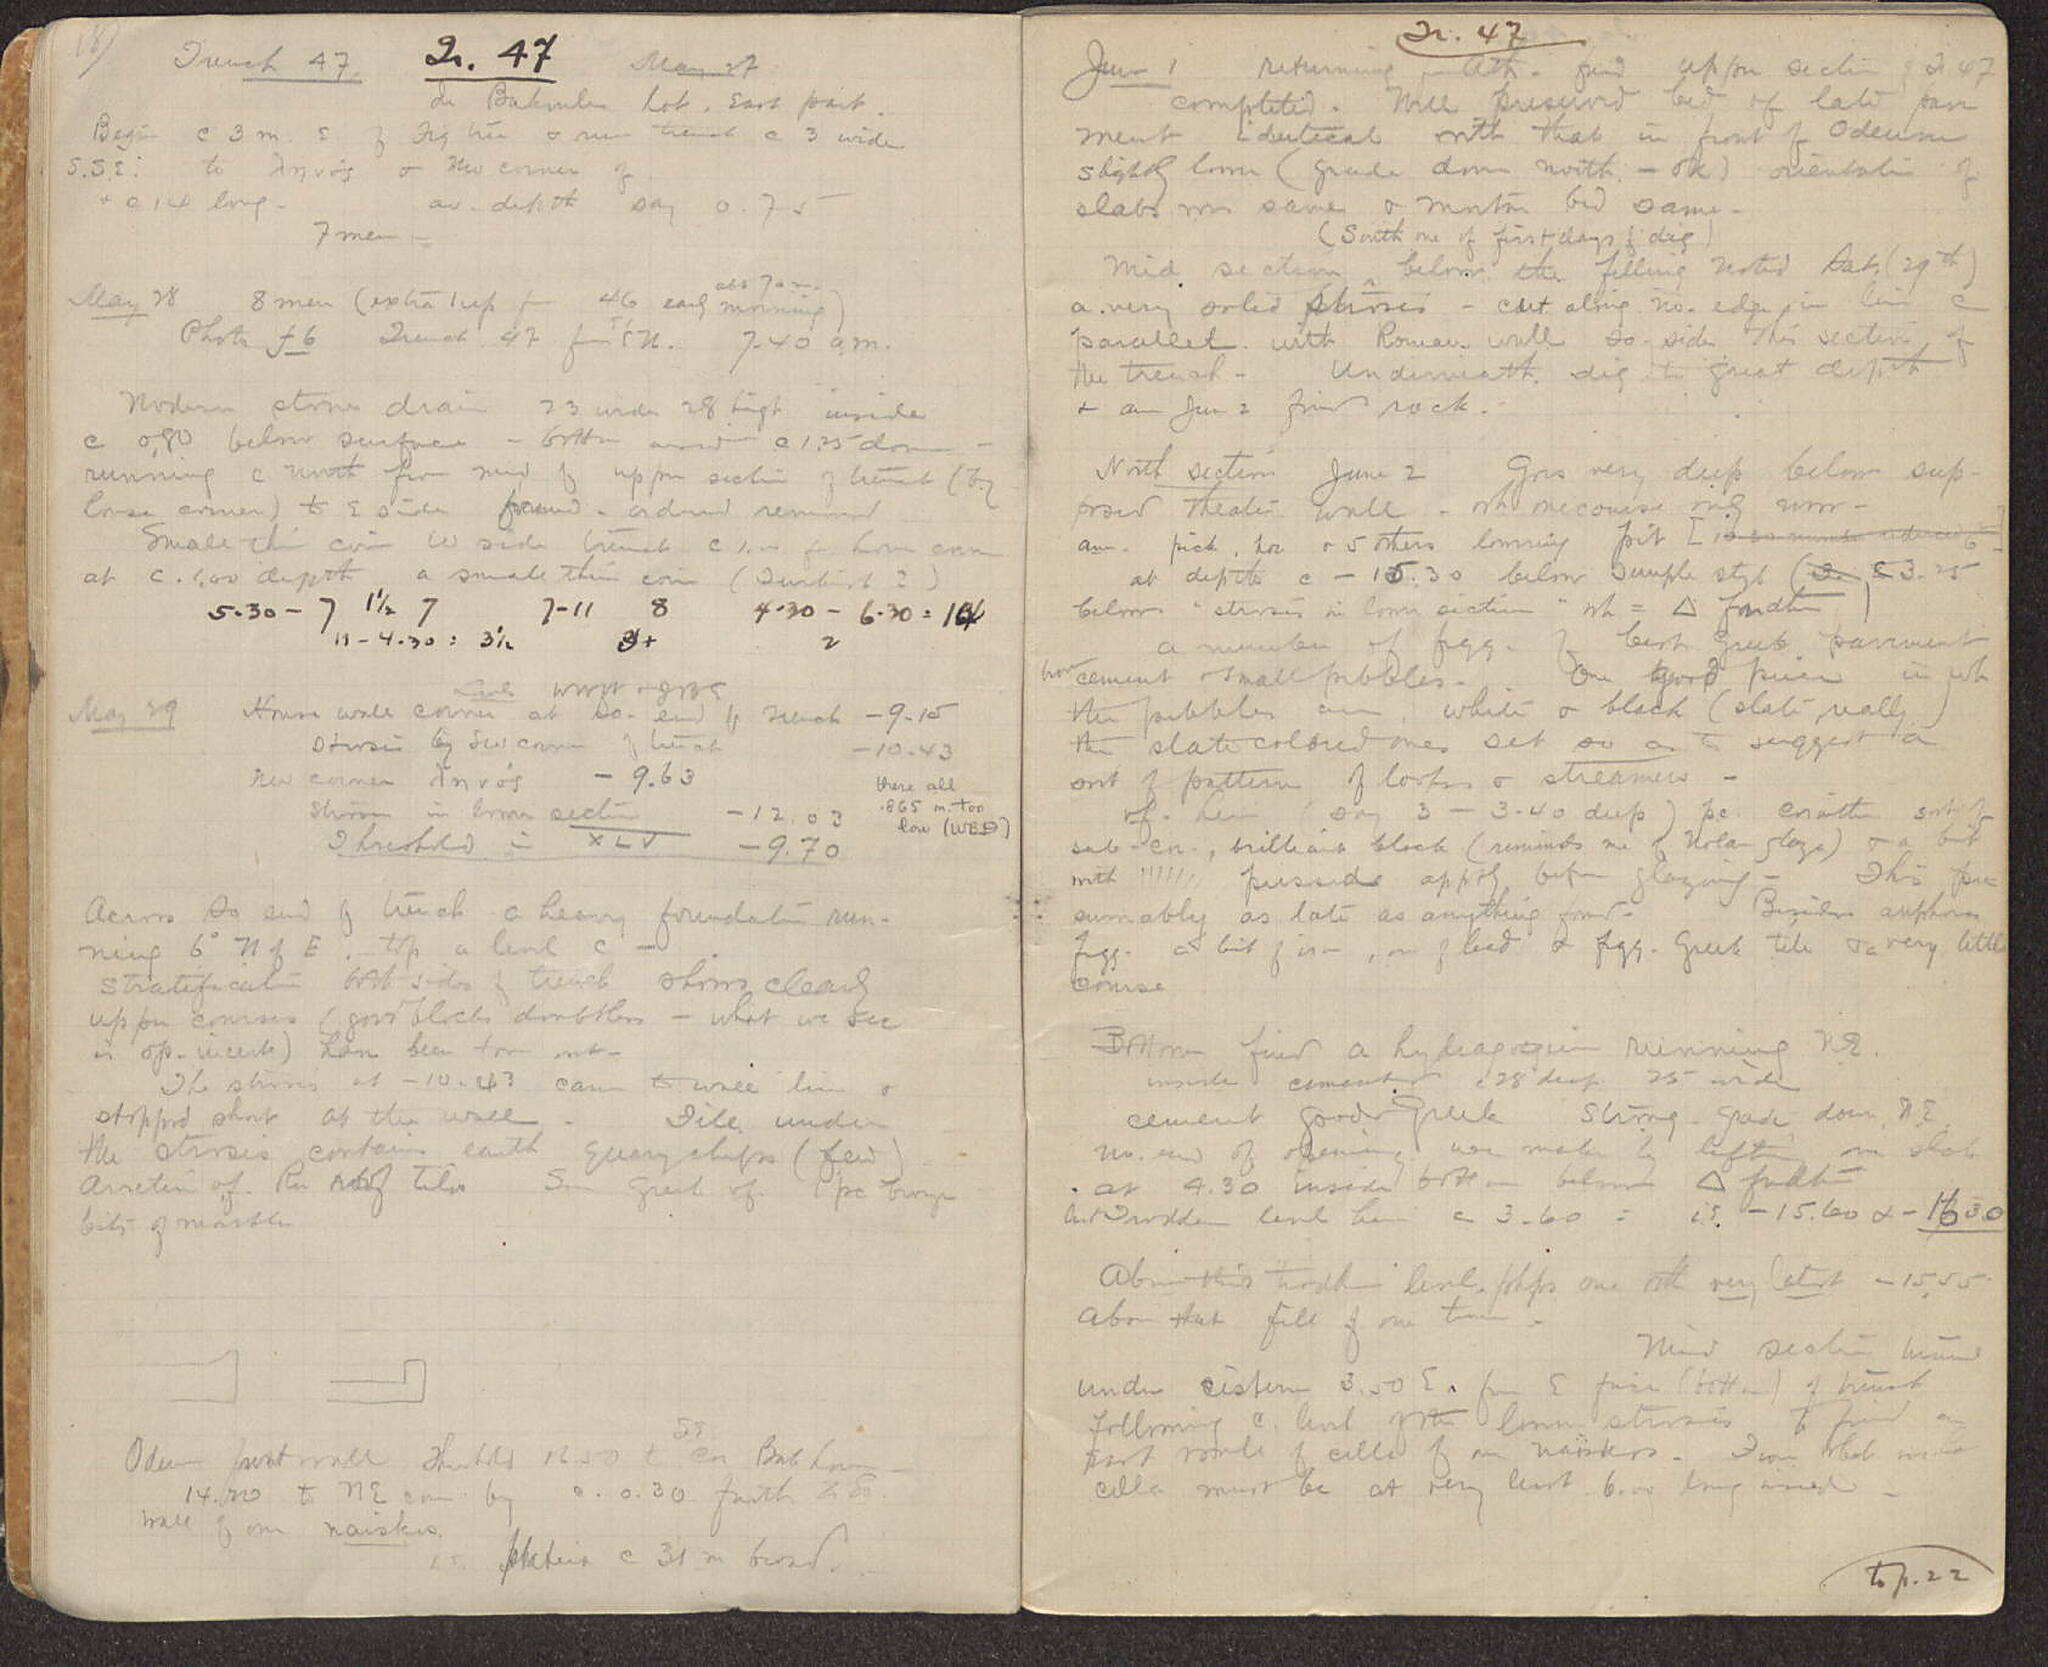 18)
Trench 47 Tr. 47 May 27
in Bakoules lot. East part.
Begin c 3 m. E of Fig tree & run trench c 3 wide
S.S.E. to ληνός & NW corner of
& c 14 long - av. depth say 0.75
7 men =
abt 7 a.m.
May 28 8 men (extra 1 up fr 46 early morning)
Photo f 6 Trench 47 from N. 7.40 a.m.
Modern stone drain 23 wide 28 high inside
c 0.80 below surface - bottom c 1.25 down -
running c north from mid of upper section of trench (by
house corner) to E side found - ordered removed
Small thin coin W side trench c 1.00 fr house corner
at c. 1.00 depth a small thin coin (Turkish?)
5.30 - 7 1½ 7 7-11 8 4.30 - 6.30 = 14
11 - 4.30 = 3½ 2
May 29 House wall corner at so. end of trench - 9.15
Strosis by SW corner of trench - 10.43
NW corner ληνός - 9.63
these all
.865 m. too
low (WBD)
Strosis in lower section - 12.03
Threshold in XLV - 9.70
Across so end of trench a heavy foundation run-
ning 6° N of E. top a level c -
stratification both sides of trench shows clearly
upper courses (good blocks doubtless - what we see
is op. incert) have been torn out -
The strosis at - 10.43 came to wall line &
stopped short at the wall. File under
the strosis contains earth quarry chips (few)
Arretine vf. Ro roof tiles Some Greek vf. 1 pc bronze
bits of marble
Odeum front wall threshold 16.50 to SE cor Bak house
14.20 to NE corner by c. 0.30 further to So.
wall of our naiskos.
i.e. plateia c 31 m broad.
Tr. 47
June 1 returning fr Ath. find upper section of Tr 47
completed. Well preserved bed of late pave
ment identical with that in front of Odeum
slightly lower (grade down north - ok) orientation of
slabs was same & mortar bed same -
(South one of first days of dig)
Mid section below the filling noted Sat. (29th)
a very solid strosis - cut along no. edge in line c
parallel with Roman wall so. side this section of
the trench - Underneath dig to great depth
& am June 2 find rock.
North section June 2 Goes very deep below sup-
posed theater wall - wh one course only now -
am. pick, hoe & 5 others lowering pit [
at depth c - 15.30 below Temple styl ( 3.25
below "strosis in lower section" wh = Δ foundation)
a number of fgg. of best Greek pavement
cement & small pebbles. One good piece in wh
the pebbles are white & black (slate really)
the slate colored ones set so as to suggest a
sort of pattern of loops & streamers -
vf. here (say 3 - 3.40 deep) pc. Corinth sort of
sub-Cor., brilliant black (reminds me of Nolan glaze) & a bit
with '''''' pressed apptly before glazing - This pre
sumably as late as anything found. Besides amphora
fgg. a bit of iron, one of lead & fgg. Greek tile & a very little
course
Bottom find a hydragogeion running NE.
inside cemented c 28 deep 25 wide
cement good Greek Strong grade down N.E.
no. end of opening was made by lifting one slab
at 4.30 inside bottom below Δ foundation
but trodden level here c 3.60 = i.e. - 15.60 & - 16.30
Above this trodden level, phps one with very latest - 15.55
above that fill of one time.
Mid section tunnel
under cistern 3.50 E. from E face (bottom) of trench
following c. level of the lower strosis to find
part walls of cella of our naiskos. From what
cella must be at very least 6.00 long inside -
to p. 22